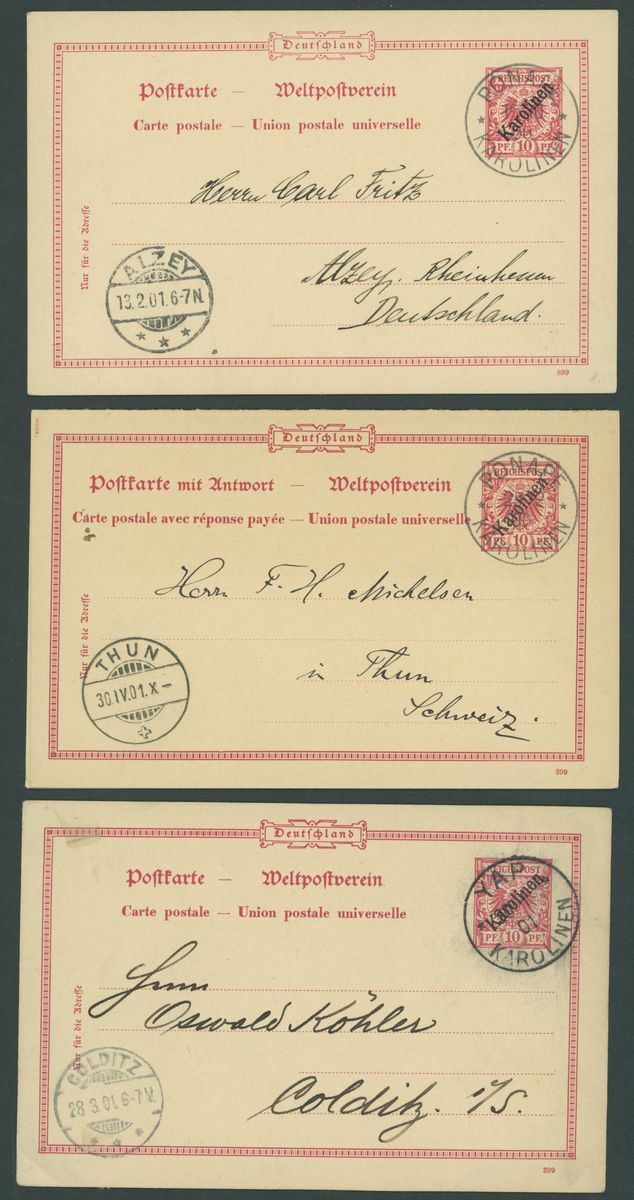 Deutschland
Postkarte — Weltpostverein
Carte postale — Union postale universelle
REICHSPOST
Karolinen
PF. 10 PF.
KAROLINEN
Herrn Carl Fritz
Nur für die Adresse
ALZEY
13.2.01. 6-7N.
Alzey. Rheinhessen
Deutschland.
899
Deutschland
Postkarte mit Antwort — Weltpostverein
Carte postale avec réponse payée — Union postale universelle
REICHSPOST
PONAPE
Karolinen
PF. 10 PF.
KAROLINEN
Herrn F. H. Michelsen
Nur für die Adresse
THUN
30.IV.01.X–
in Thun
Schweiz.
399
Deutschland
Postkarte — Weltpostverein
Carte postale — Union postale universelle
YAP
Karolinen
01
PF. 10 PF.
KAROLINEN
Herrn
Oswald Köhler
Nur für die Adresse
COLDITZ
28.3.01. 6-7V.
Colditz. i/S.
399